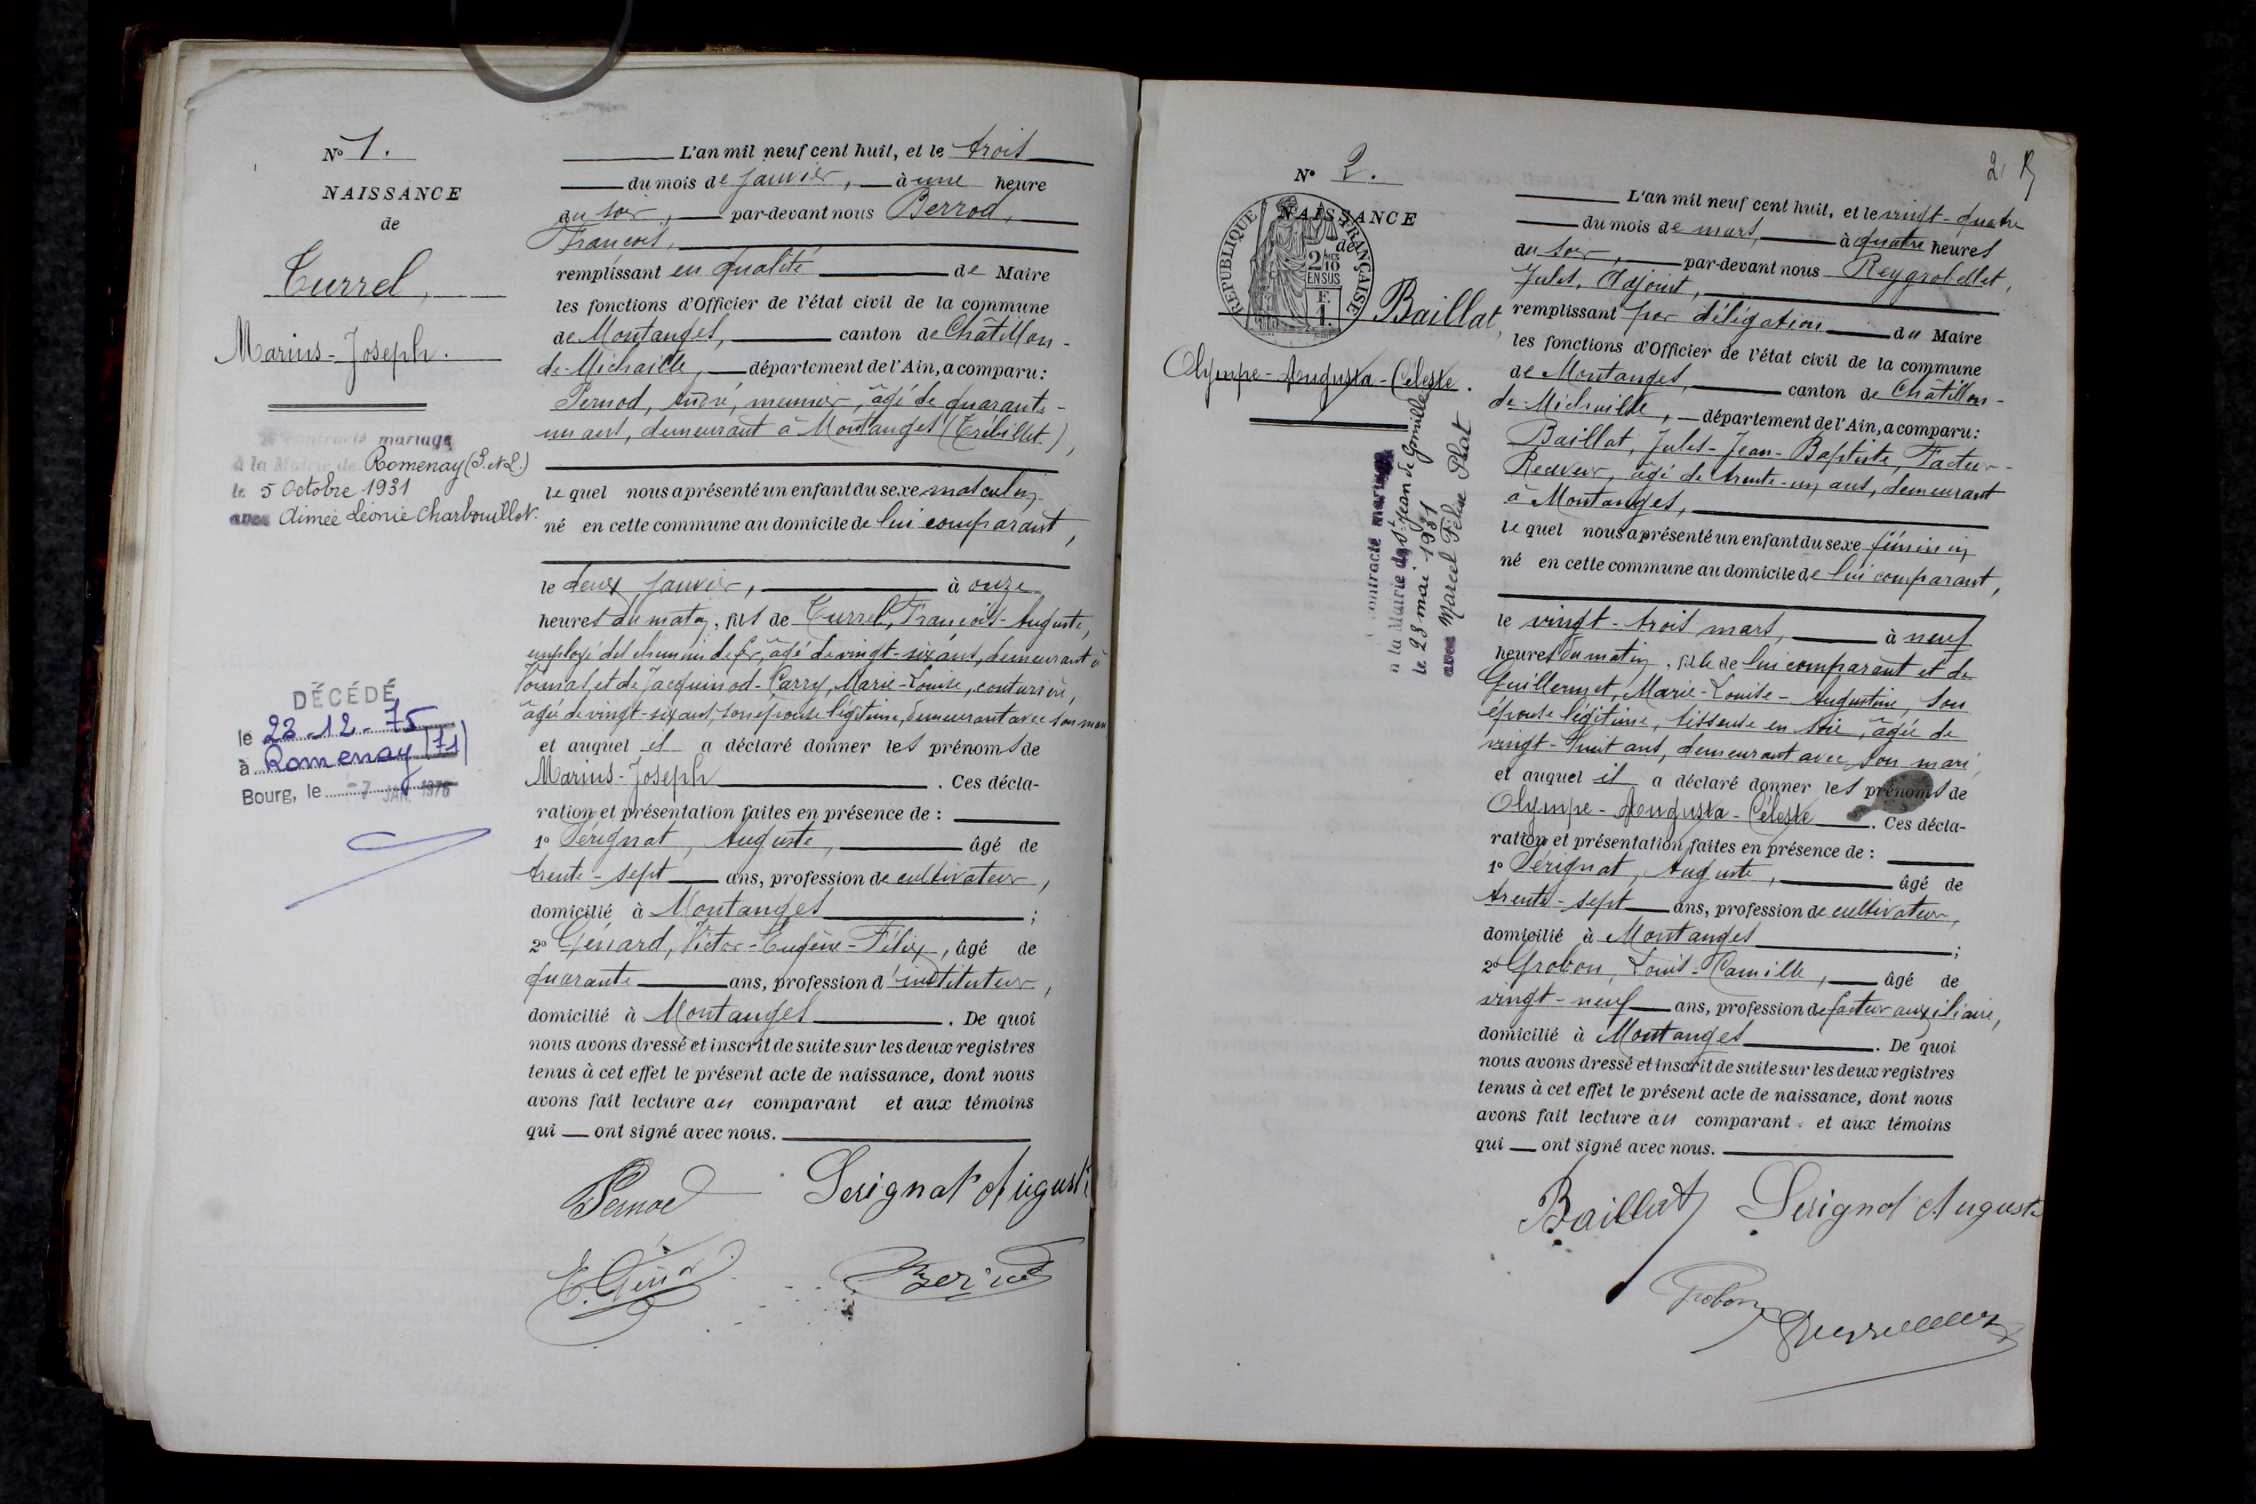 N° 1.
NAISSANCE
de
Turrel,
Marius-Joseph.
contracté mariage
à la Mairie de Romenay (S.et L.)
le 5 Octobre 1931
avec Aimée Léonie Charbouillot.
DÉCÉDÉ
le 23-12-75
à Romenay (71)
Bourg, le -7 JAN. 1976
L'an mil neuf cent huit, et le trois
du mois de janvier, à une heure
du soir, par-devant nous Berrod,
François,
remplissant en qualité de Maire
les fonctions d'Officier de l'état civil de la commune
de Montanges, canton de Châtillon-
de-Michaille, département de l'Ain, a comparu:
Pernod, André, meunier, âgé de quarante-
un ans, demeurant à Montanges (Trébillet),
lequel nous a présenté un enfant du sexe masculin
né en cette commune au domicile de lui comparant,
le deux janvier, à onze
heures du matin, fils de Turrel, François-Auguste,
employé de chemin de fer, âgé de vingt-six ans, demeurant à
et de Jacquinod-Carry, Marie-Louise, couturière,
âgée de vingt-six ans, son épouse légitime, demeurant avec son mari
et auquel il a déclaré donner les prénoms de
Marius-Joseph. Ces décla-
ration et présentation faites en présence de :
1° Sérignat, Auguste, âgé de
trente-sept ans, profession de cultivateur,
domicilié à Montanges ;
2° Génard, Victor-Eugène-Félix, âgé de
quarante ans, profession d'instituteur,
domicilié à Montanges. De quoi
nous avons dressé et inscrit de suite sur les deux registres
tenus à cet effet le présent acte de naissance, dont nous
avons fait lecture au comparant et aux témoins
qui ont signé avec nous.
Pernod Serignat Auguste
E. Génard Berrod
2
N° 2.
NAISSANCE
de
RÉPUBLIQUE FRANÇAISE
2/10 EN SUS
Baillat,
Olympe-Augusta-Céleste.
contracté mariage
à la Mairie de St Jean de Gonville
le 28 mai 1931
avec Marcel Félix Prat
L'an mil neuf cent huit, et le vingt-quatre
du mois de mars, à quatre heures
du soir, par-devant nous Reygrobellet,
Jules, Adjoint,
remplissant par délégation du Maire
les fonctions d'Officier de l'état civil de la commune
de Montanges, canton de Châtillon-
de-Michaille, département de l'Ain, a comparu:
Baillat, Jules-Jean-Baptiste, Facteur-
Receveur, âgé de trente-un ans, demeurant
à Montanges,
lequel nous a présenté un enfant du sexe féminin
né en cette commune au domicile de lui comparant,
le vingt-trois mars, à neuf
heures du matin, fille de lui comparant et de
Guillermet, Marie-Louise-Augustine, son
épouse légitime, tisseuse en soie, âgée de
vingt-huit ans, demeurant avec son mari,
et auquel il a déclaré donner les prénoms de
Olympe-Augusta-Céleste. Ces décla-
ration et présentation faites en présence de :
1° Sérignat, Auguste, âgé de
trente-sept ans, profession de cultivateur,
domicilié à Montanges ;
2° Grobon, Louis-Camille, âgé de
vingt-neuf ans, profession de facteur auxiliaire,
domicilié à Montanges. De quoi
nous avons dressé et inscrit de suite sur les deux registres
tenus à cet effet le présent acte de naissance, dont nous
avons fait lecture au comparant et aux témoins
qui ont signé avec nous.
Baillat Serignat Auguste
Grobon